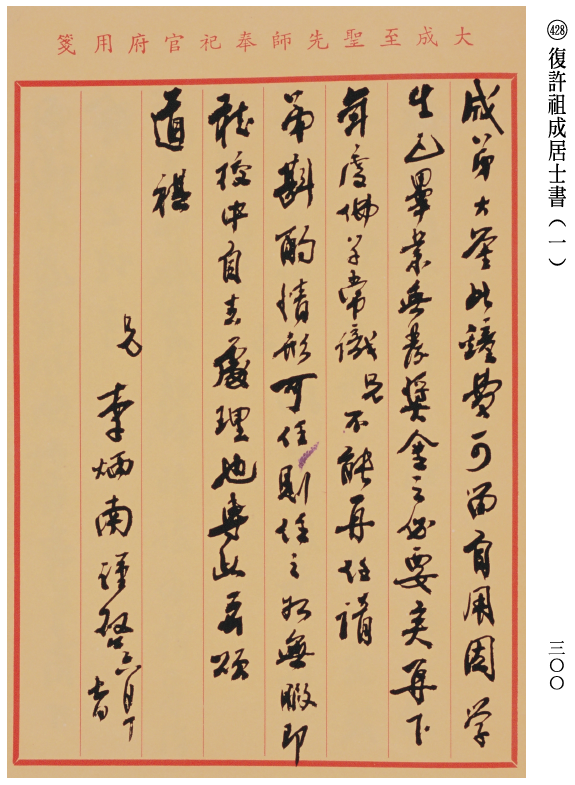 ㊷⑧復許祖成居士書（一）
三〇〇
大成至聖先師奉祀官府用箋
成弟大鑒此種費可留有用因學
生已畢業無發獎金之必要矣再下
年度佛學常識兄不能再任請
弟斟酌情形可任則任之如無暇即
就校中自喜處理也專此再頌
道祺
兄
李炳南謹啓六月廿